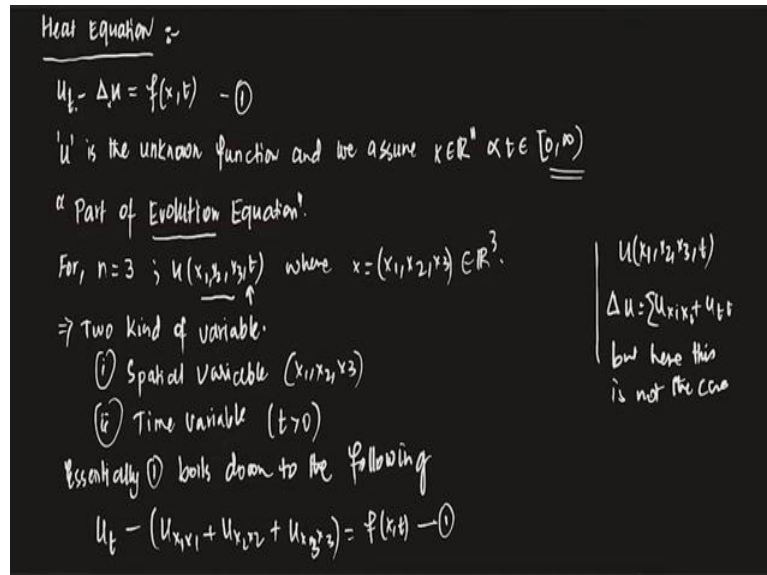 Heat Equation :-
u_t - Δu = f(x,t) - ①
'u' is the unknown function and we assume x∈ℝⁿ & t∈ [0,∞)
"Part of Evolution Equation".
For, n=3 ; u(x₁,x₂,x₃,t) where x=(x₁,x₂,x₃)∈ℝ³.
⇒ Two kind of variable.
(i) Spatial Variable (x₁,x₂,x₃)
(ii) Time Variable (t>0)
Essentially ① boils down to the following
u_t - (u_x₁x₁ + u_x₂x₂ + u_x₃x₃) = f(x,t) - ①
u(x₁,x₂,x₃,t)
Δu = Σu_xᵢxᵢ + u_tt
but here this
is not the case